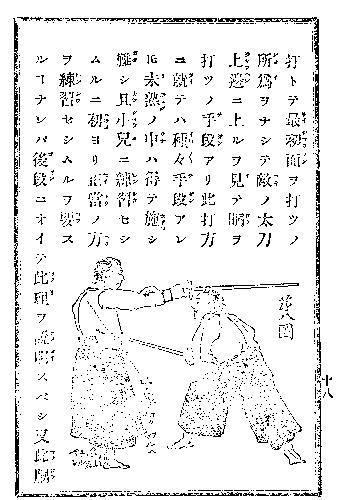 打トテ最初面ヲ打ツノ
所爲ヲナシテ敵ノ太刀
上邊ニ上ルヲ見テ胴ヲ
打ツノ手段アリ此打方
ニ就テハ種々手段アレ
𪜈未熟ノ中ハ待テ施シ
難シ且小兒ニ練習セシ
ムルニ初ヨリ正當ノ方
ヲ練習セシムルヲ要ス
ルコナレバ後段ニオイテ此理ヲ説明スベシ又此胴
第八圖
十八